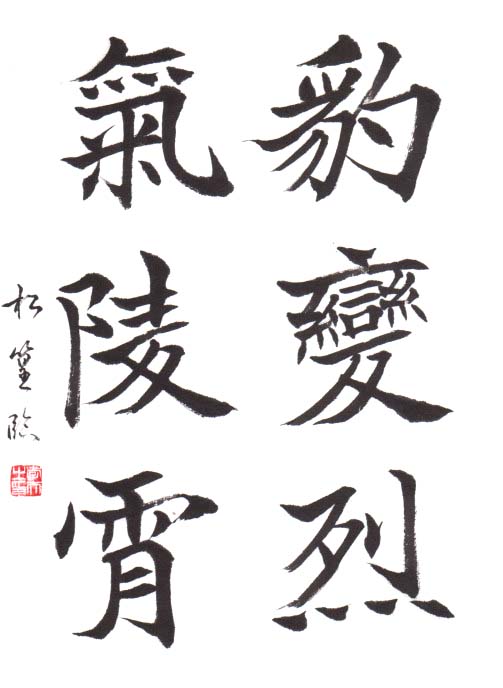 豹變烈
氣陵霄
松篁臨